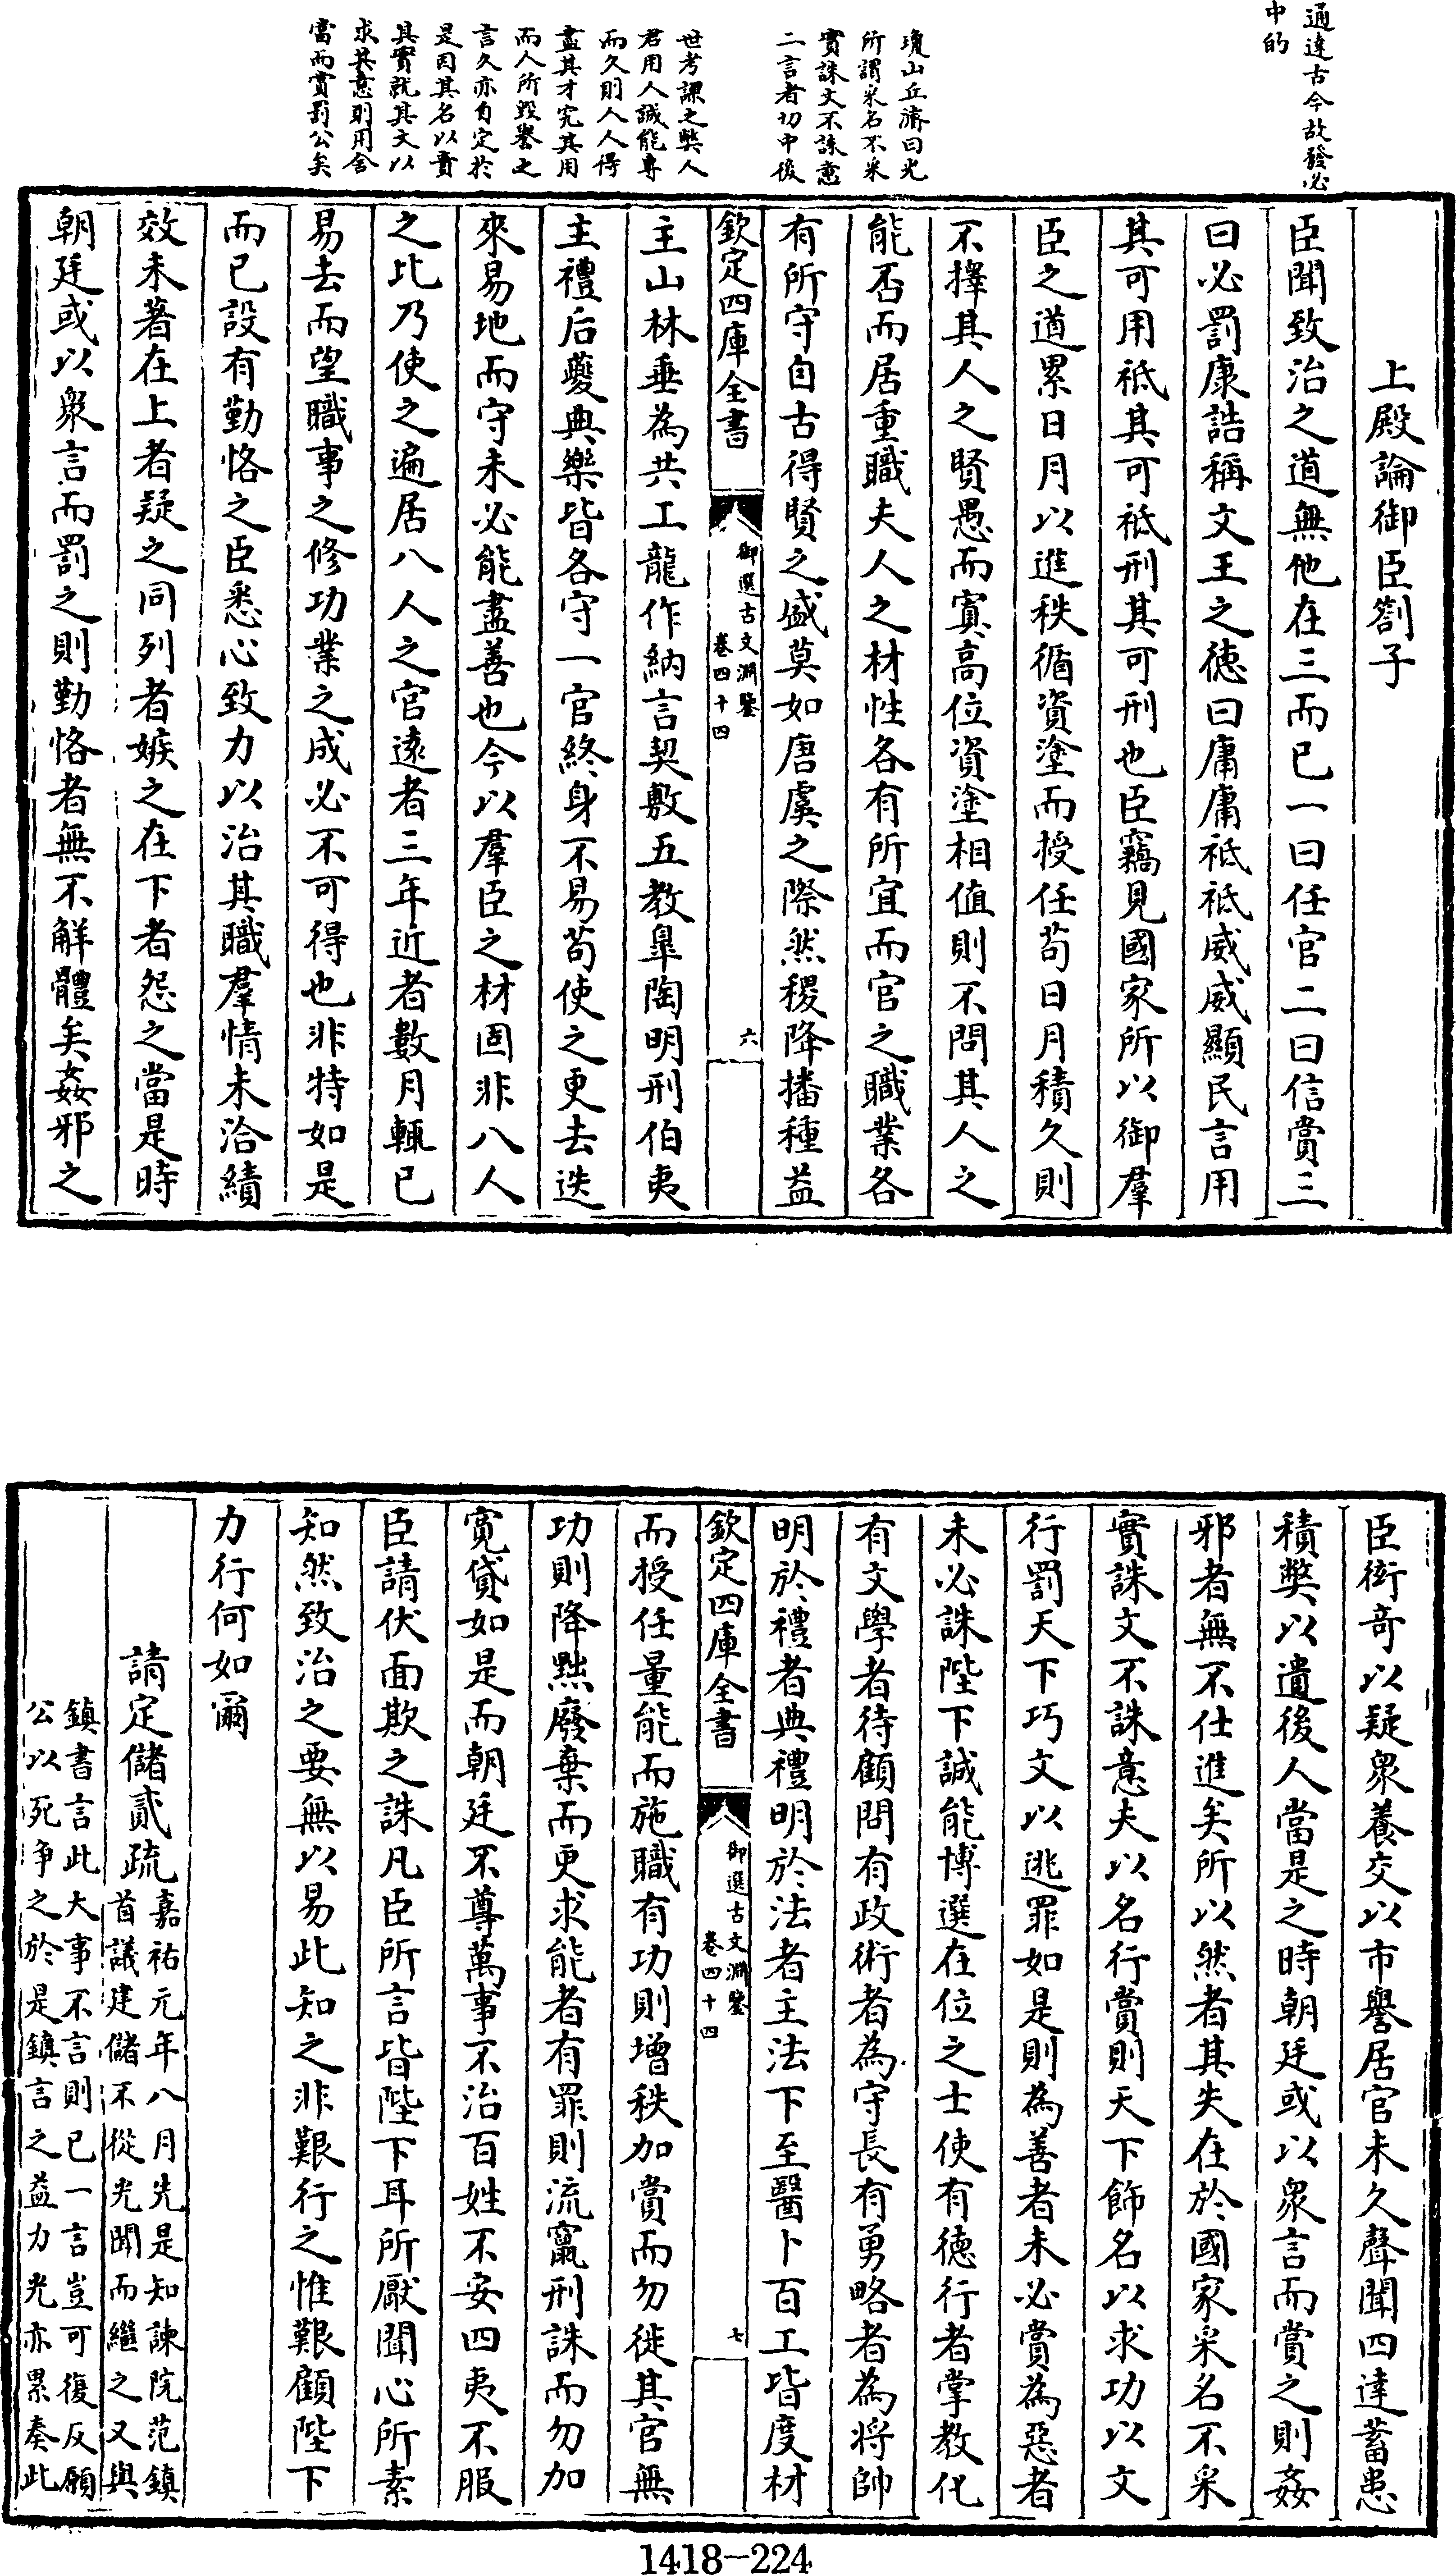 通達古今故發必
中的
瓊山丘濬曰光
所謂采名不采
實誅文不誅意
二言者切中後
世考課之弊人
君用人誠能專
而久則人人得
盡其才究其用
而人所毀譽之
言久亦自定於
是因其名以責
其實就其文以
求其意則用舍
當而賞罰公矣
上殿論御臣劄子
臣聞致治之道無他在三而已一曰任官二曰信賞三
曰必罰康誥稱文王之徳曰庸庸祗祗威威顯民言用
其可用祗其可祗刑其可刑也臣竊見國家所以御羣
臣之道累日月以進秩循資塗而授任苟日月積久則
不擇其人之賢愚而寘高位資塗相值則不問其人之
能否而居重職夫人之材性各有所宜而官之職業各
有所守自古得賢之盛莫如唐虞之際然稷降播種益
欽定四庫全書
御選古文淵鑒
卷四十四
六
主山林垂為共工龍作納言契敷五教臯陶明刑伯夷
主禮后夔典樂皆各守一官終身不易苟使之更去迭
來易地而守未必能盡善也今以羣臣之材固非八人
之比乃使之遍居八人之官遠者三年近者數月輒已
易去而望職事之修功業之成必不可得也非特如是
而已設有勤恪之臣悉心致力以治其職羣情未洽績
效未著在上者疑之同列者嫉之在下者怨之當是時
朝廷或以衆言而罰之則勤恪者無不解體矣姦邪之
臣衒竒以疑衆養交以市譽居官未久聲聞四達蓄患
積弊以遺後人當是之時朝廷或以衆言而賞之則姦
邪者無不仕進矣所以然者其失在於國家采名不采
實誅文不誅意夫以名行賞則天下飾名以求功以文
行罰天下巧文以逃罪如是則為善者未必賞為惡者
未必誅陛下誠能博選在位之士使有徳行者掌教化
有文學者待顧問有政術者為守長有勇略者為將帥
明於禮者典禮明於法者主法下至醫卜百工皆度材
欽定四庫全書
御選古文淵鑒
卷四十四
七
而授任量能而施職有功則增秩加賞而勿徙其官無
功則降黜廢棄而更求能者有罪則流竄刑誅而勿加
寛貸如是而朝廷不尊萬事不治百姓不安四夷不服
臣請伏面欺之誅凡臣所言皆陛下耳所厭聞心所素
知然致治之要無以易此知之非艱行之惟艱顧陛下
力行何如爾
請定儲貳疏
嘉祐元年八月先是知諫院范鎮
首議建儲不從光聞而繼之又與
鎮書言此大事不言則已一言豈可復反願
公以死爭之於是鎮言之益力光亦累奏此
1418-224